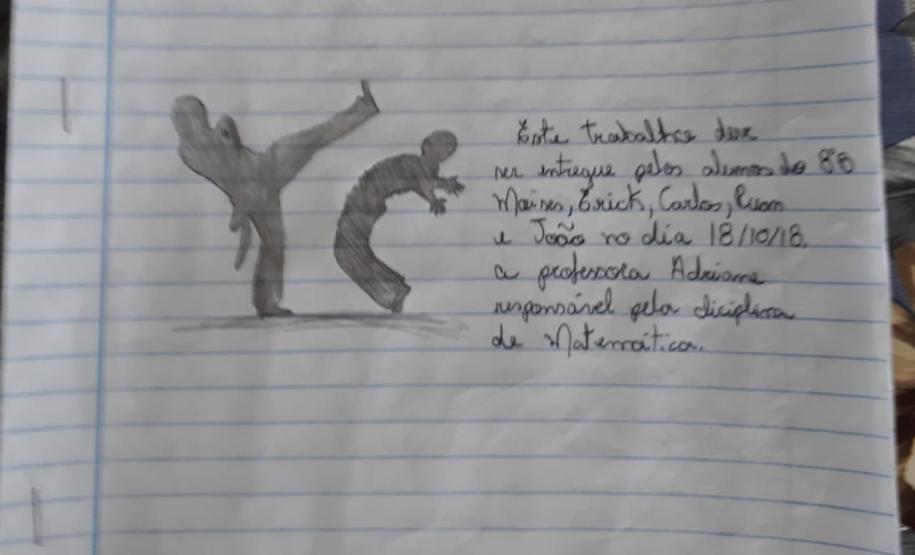 Este trabalho deve
ser entregue pelos alunos do 8ºB
Moises, Erick, Carlos, Ruam
e João no dia 18/10/18.
a professora Adriana
responsável pela diciplina
de Matemática.